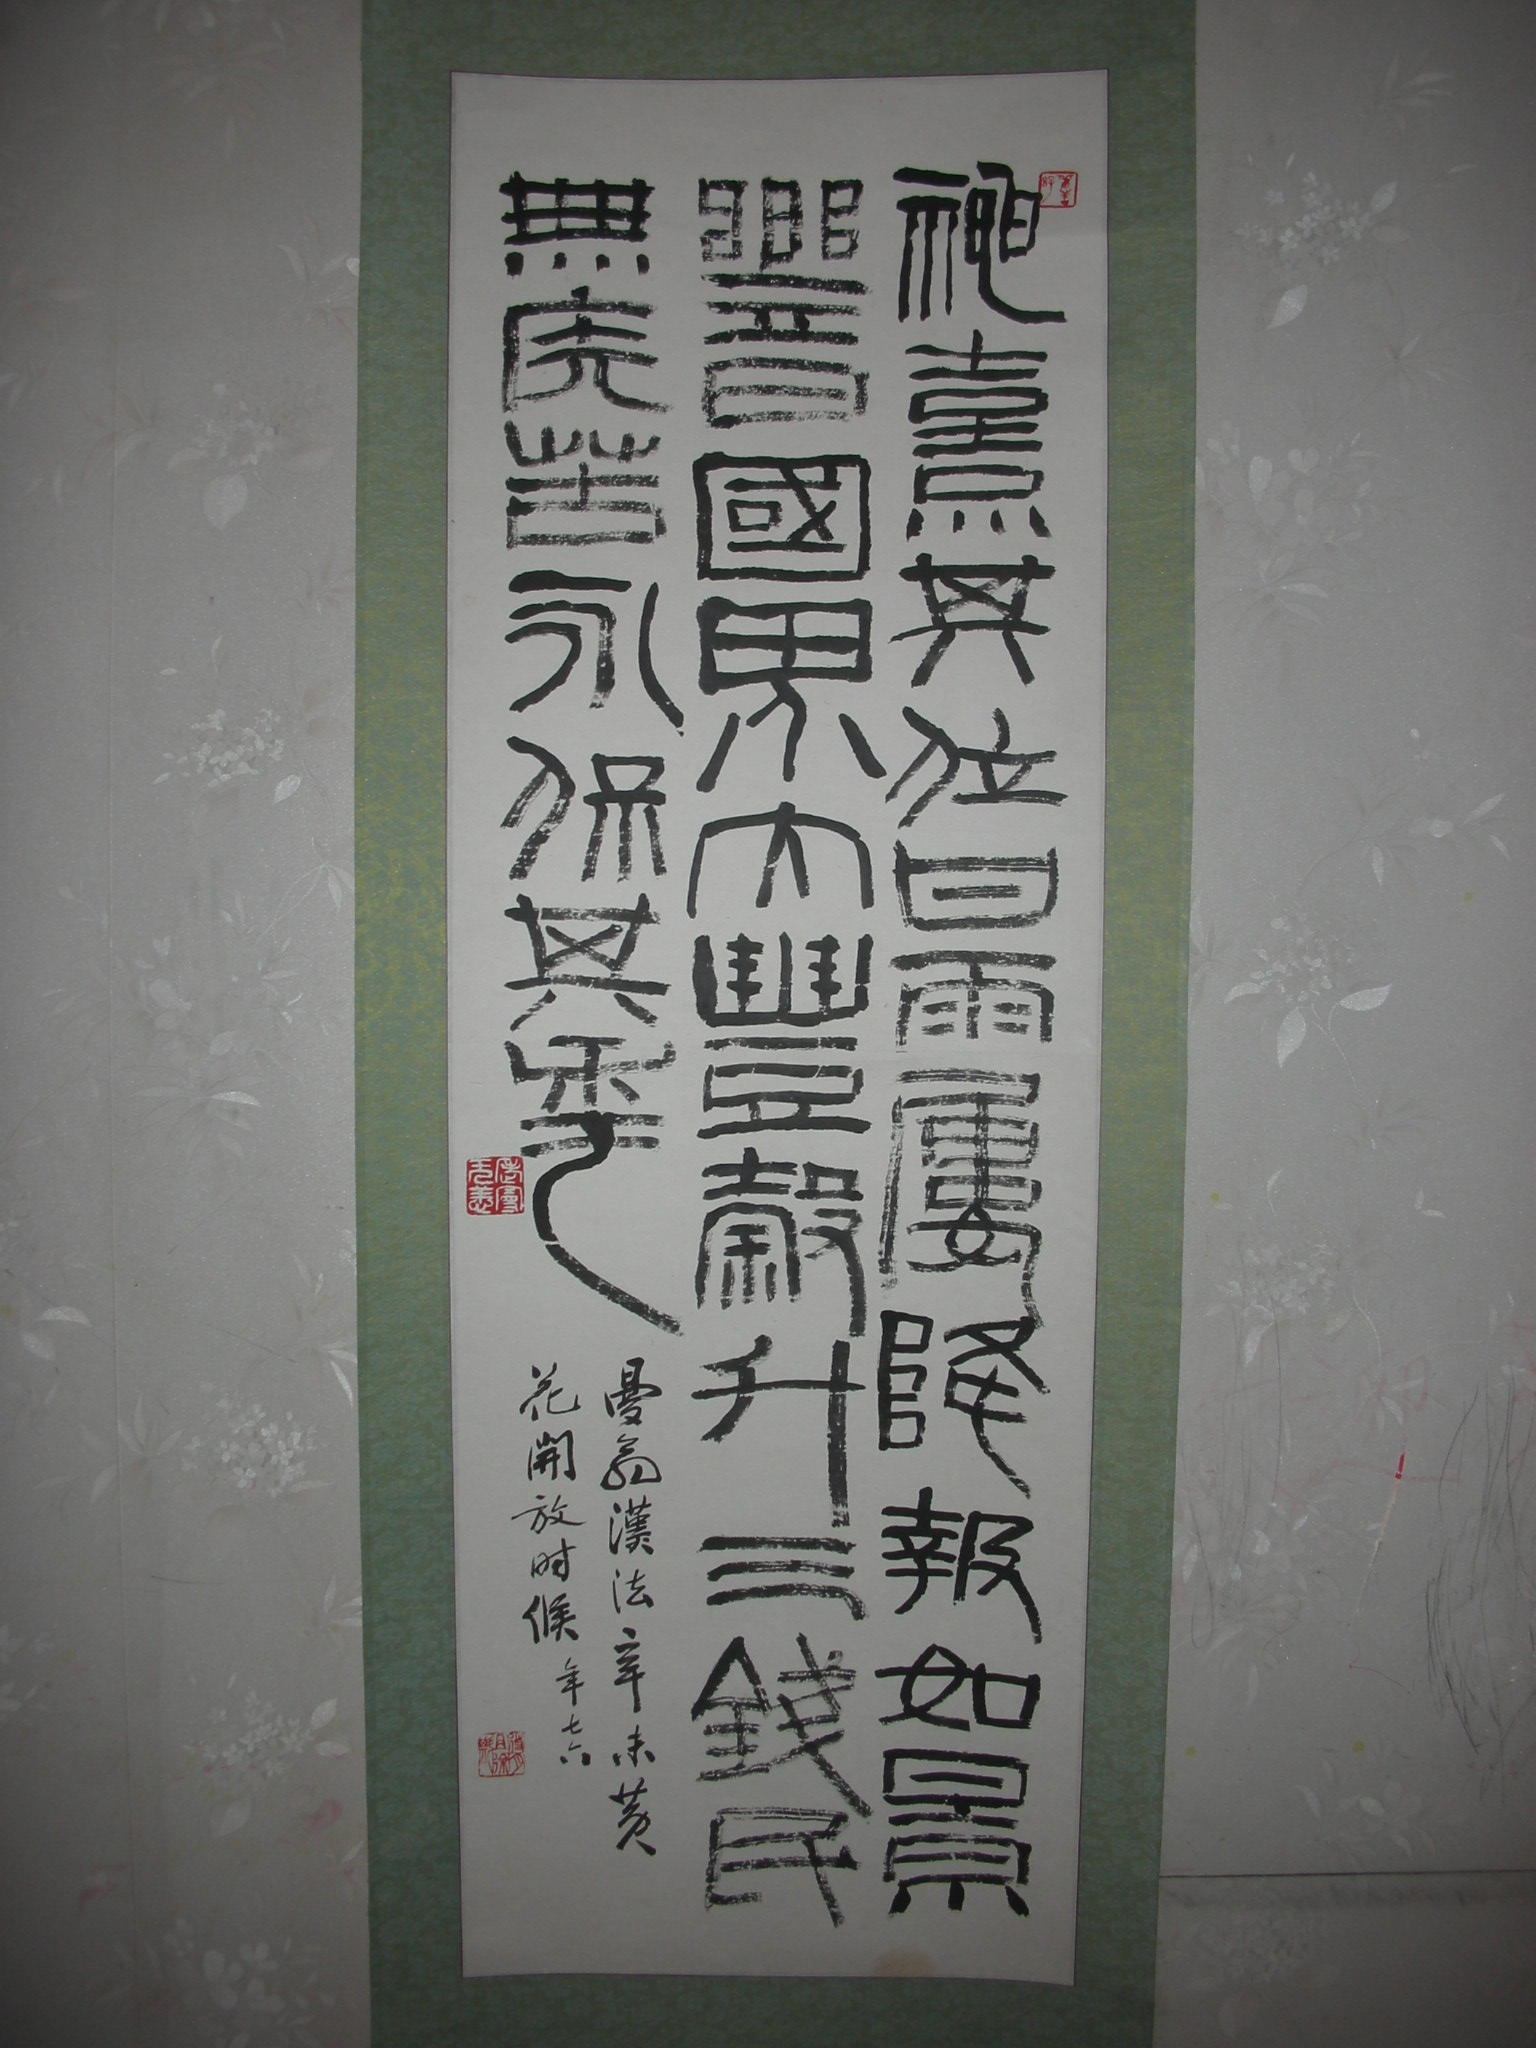 神熹其位甘雨屢降報如景
響國界大豐穀斗三錢民
無疾苦永保其年
曼翁漢法辛未黄
花開放时候年七六